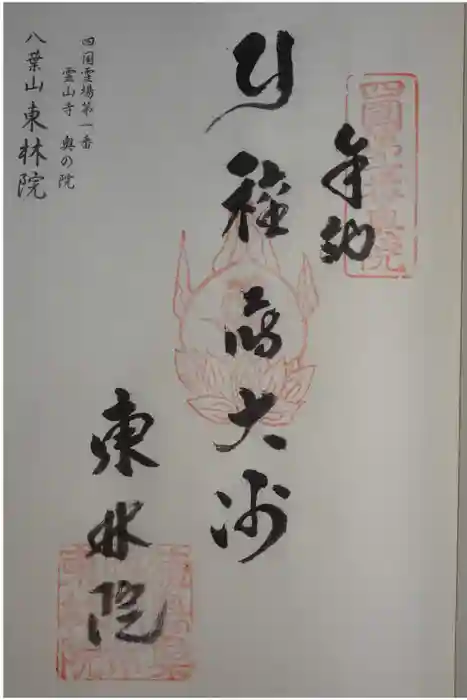 四國第一番奥院
奉納
種蒔大師
東林院
四国霊場第一番
霊山寺 奥の院
八葉山 東林院